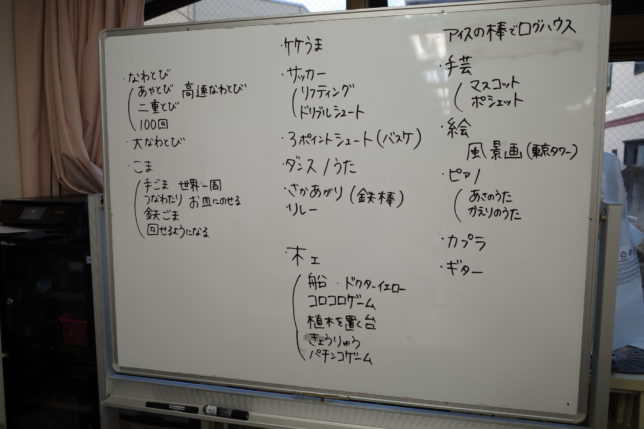 ・なわとび
あやとび 高速なわとび
二重とび
100回
・大なわとび
・こま
手ごま 世界一周
つなわたり お皿にのせる
鉄ごま
回せるようになる
・ケケうま
・サッカー
リフティング
ドリブルシュート
・3ポイントシュート(バスケ)
・ダンス/うた
・さかあがり(鉄棒)
・リレー
・木工
船 ・ドクターイエロー
コロコロゲーム
植木を置く台
きょうりゅう
パチンコゲーム
アイスの棒でログハウス
・手芸
マスコット
ポシェット
・絵
風景画(東京タワー)
・ピアノ
あさのうた
かえりのうた
・カプラ
・ギター